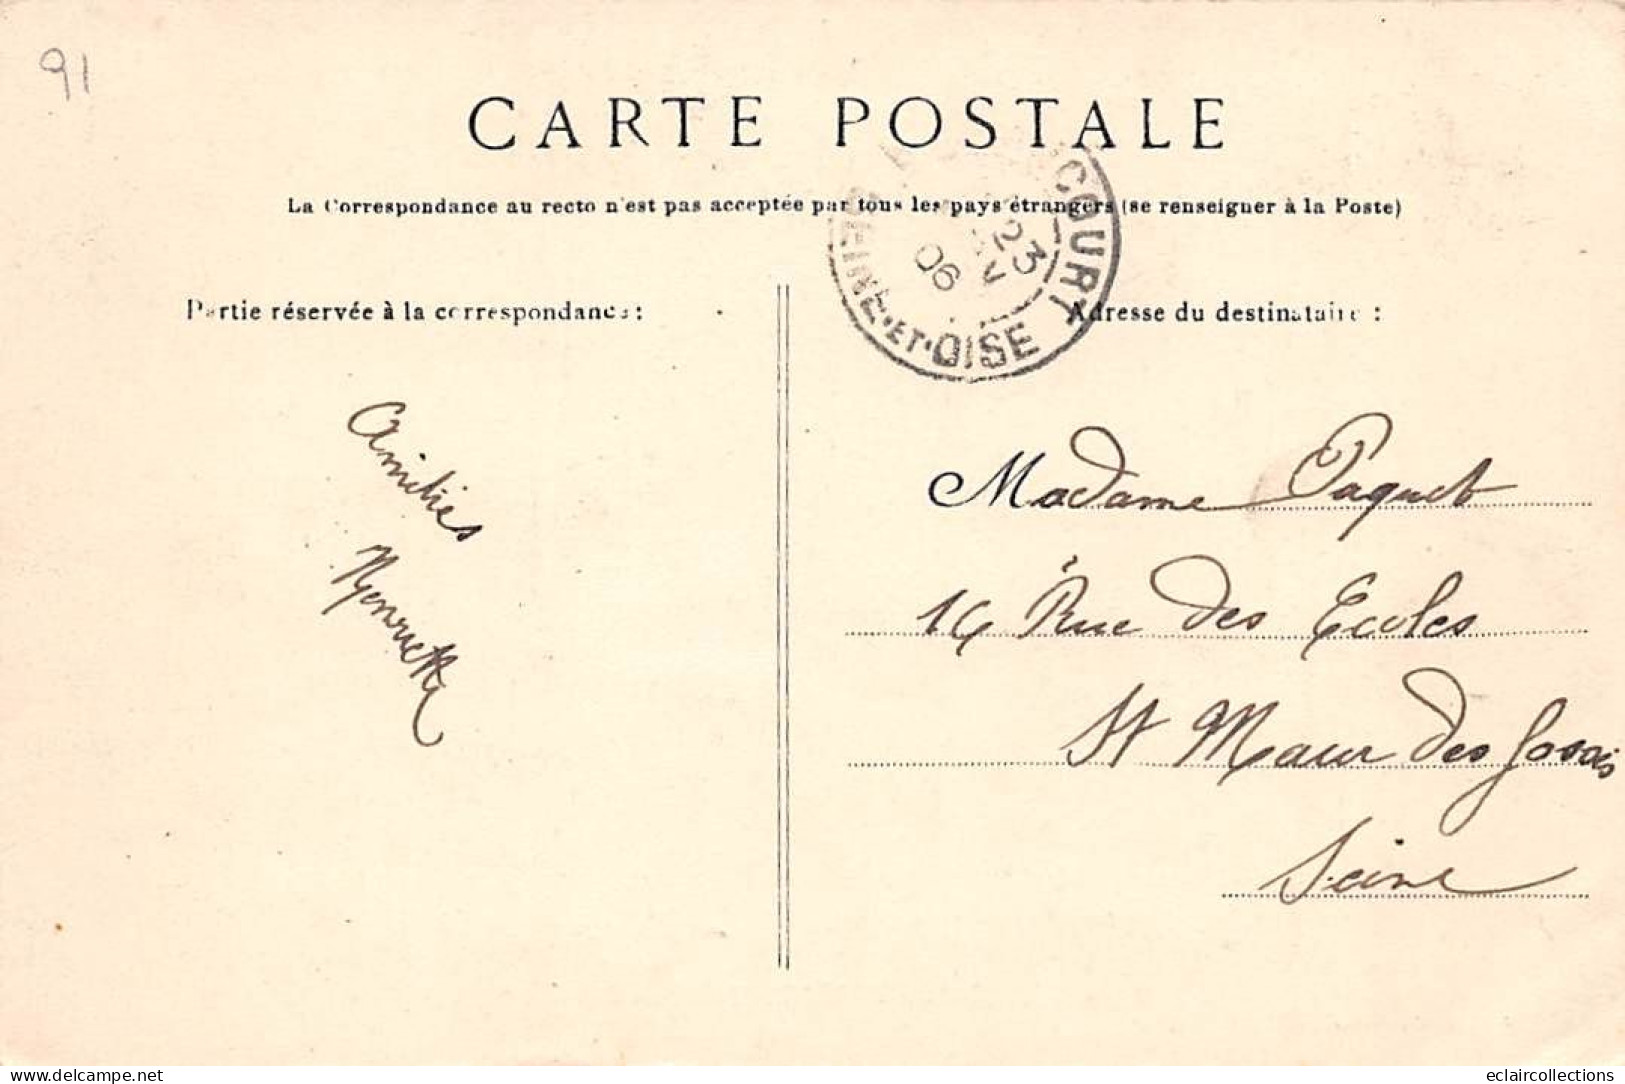 91
CARTE POSTALE
La Correspondance au recto n'est pas acceptée par tous les pays étrangers (se renseigner à la Poste)
COURT
23
06
SEINE-ET-OISE
Partie réservée à la correspondance :
Adresse du destinataire :
Amitiés
Madame Paquet
14 Rue des Ecoles
St Maur des Fossés
Seine
www.delcampe.net
eclaircollections